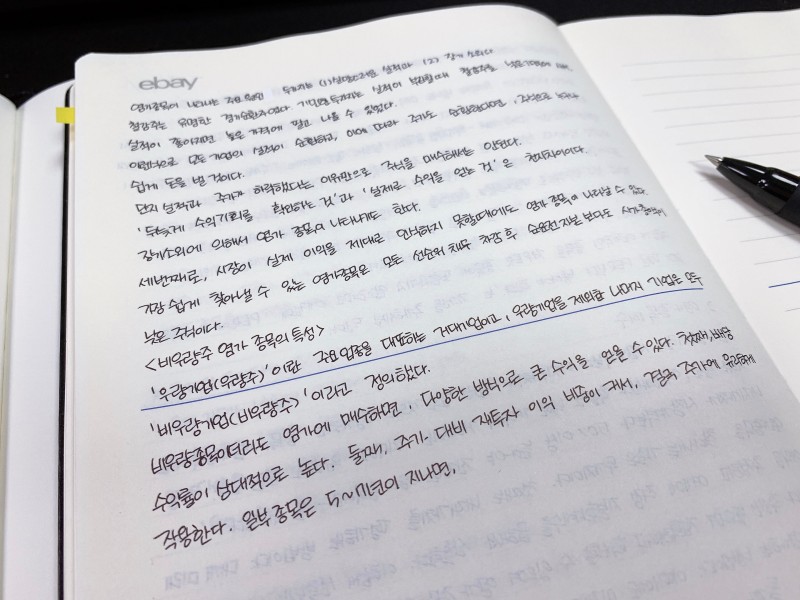 ebay
염가종목이 나타나는 주요 원인 투자자는 (1) 실망스러운 실적과 (2) 장기 소외다
철강주는 유명한 경기순환주였다. 기민한 투자자는 실적이 부진할때
실적이 좋아지면 높은 가격에 팔고 나올 수 있었다.
이런식으로 모든 기업의 실적이 순환하고, 이에 따라 주가도 순환한다면,
쉽게 돈을 벌 것이다.
단지 실적과 주가가 하락했다는 이유만으로 주식을 매수해서는 안된다.
'뒤늦게 수익기회를 확인하는 것'과 '실제로 수익을 얻는 것'은 천지차이이다.
장기소외에 의해서 염가 종목이 나타나기도 한다.
세번째로, 시장이 실제 이익을 제대로 인식하지 못할때에도 염가 종목이 나타날 수 있다.
가장 쉽게 찾아낼 수 있는 염가종목은 모든 선순위 채무 차감 후 순운전자본 보다도 시가총액이
낮은 주식이다.
<비우량주 염가 종목의 특성>
'우량기업(우량주)'이란 주요업종을 대표하는 거대기업이고, 우량기업을 제외한 나머지 기업은 모두
'비우량기업(비우량주)'이라고 정의했다.
비우량종목이더라도 염가에 매수하면, 다양한 방식으로 큰 수익을 얻을 수 있다. 첫째, 배당
수익률이 상대적으로 높다. 둘째, 주가 대비 재투자 이익 비중이 커서, 결국 주가에 유리하게
작용한다. 일부 종목은 5~7년이 지나면,